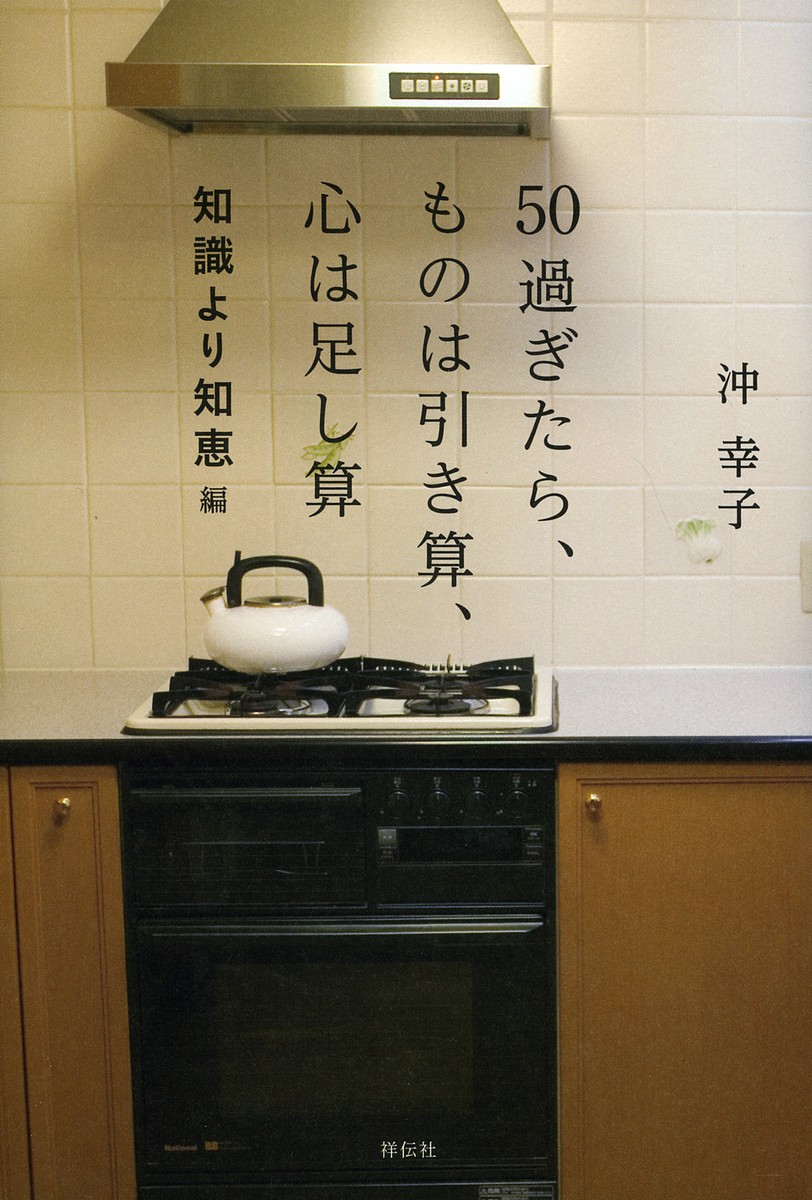 沖 幸子
50過ぎたら、
ものは引き算、
心は足し算
知識より知恵 編
National
祥伝社